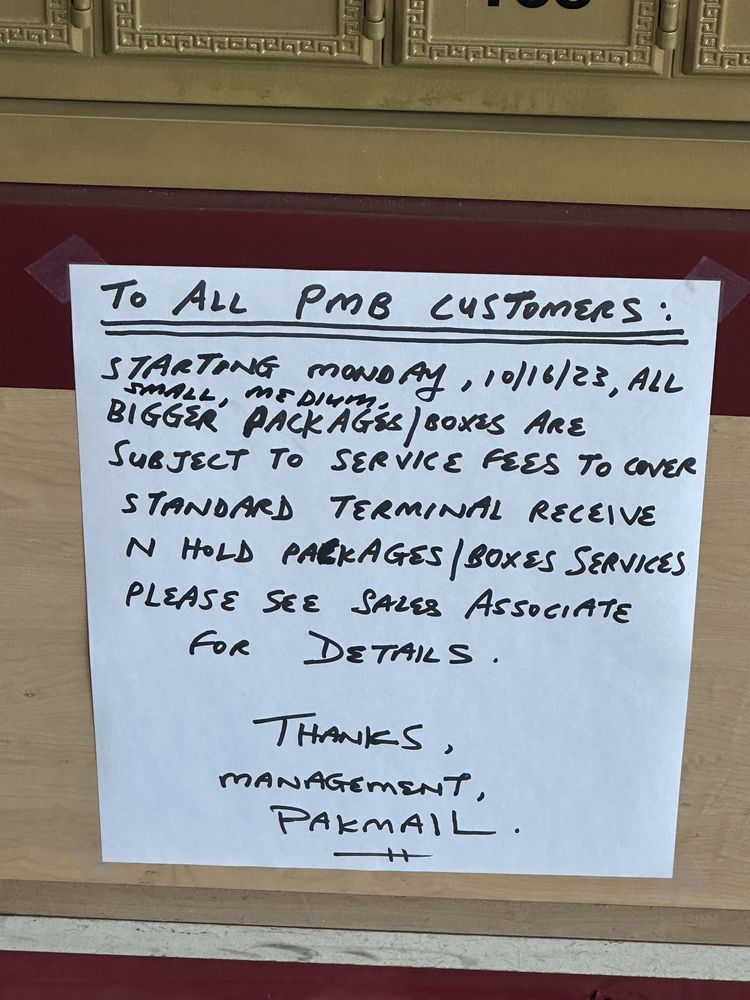 TO ALL PMB CUSTOMERS:
STARTING MONDAY, 10/16/23, ALL
SMALL, MEDIUM,
BIGGER PACKAGES/BOXES ARE
SUBJECT TO SERVICE FEES TO COVER
STANDARD TERMINAL RECEIVE
N HOLD PACKAGES/BOXES SERVICES
PLEASE SEE SALES ASSOCIATE
FOR DETAILS.
THANKS,
MANAGEMENT,
PAKMAIL.